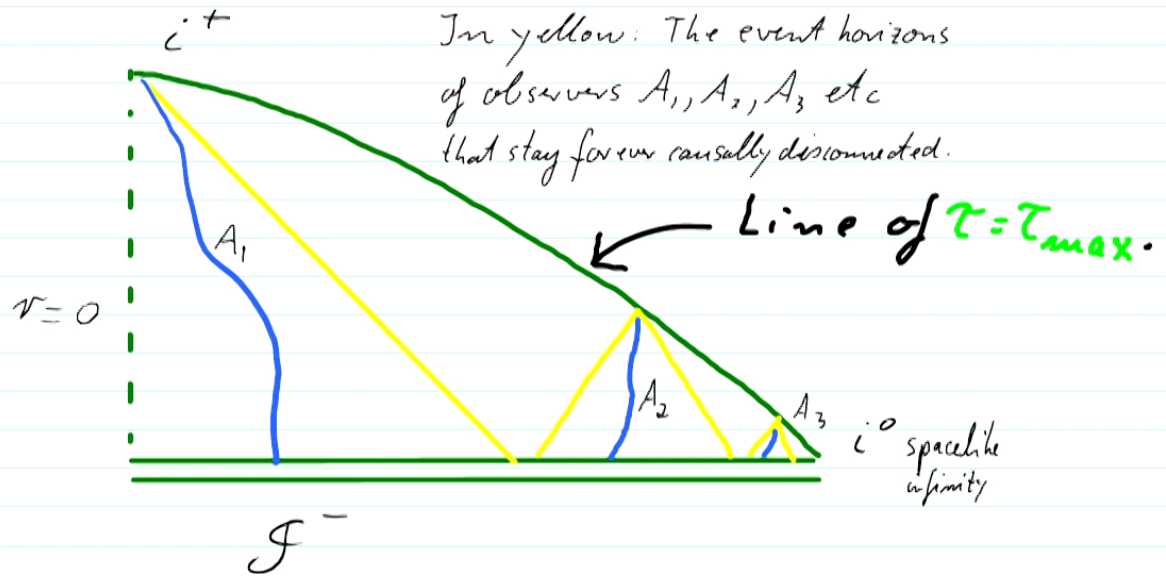 i⁺
In yellow: The event horizons
of observers A₁, A₂, A₃ etc
that stay forever causally disconnected.
Line of τ=τmax.
A₁
r=0
A₂
A₃
i⁰ spacelike
infinity
𝓘⁻